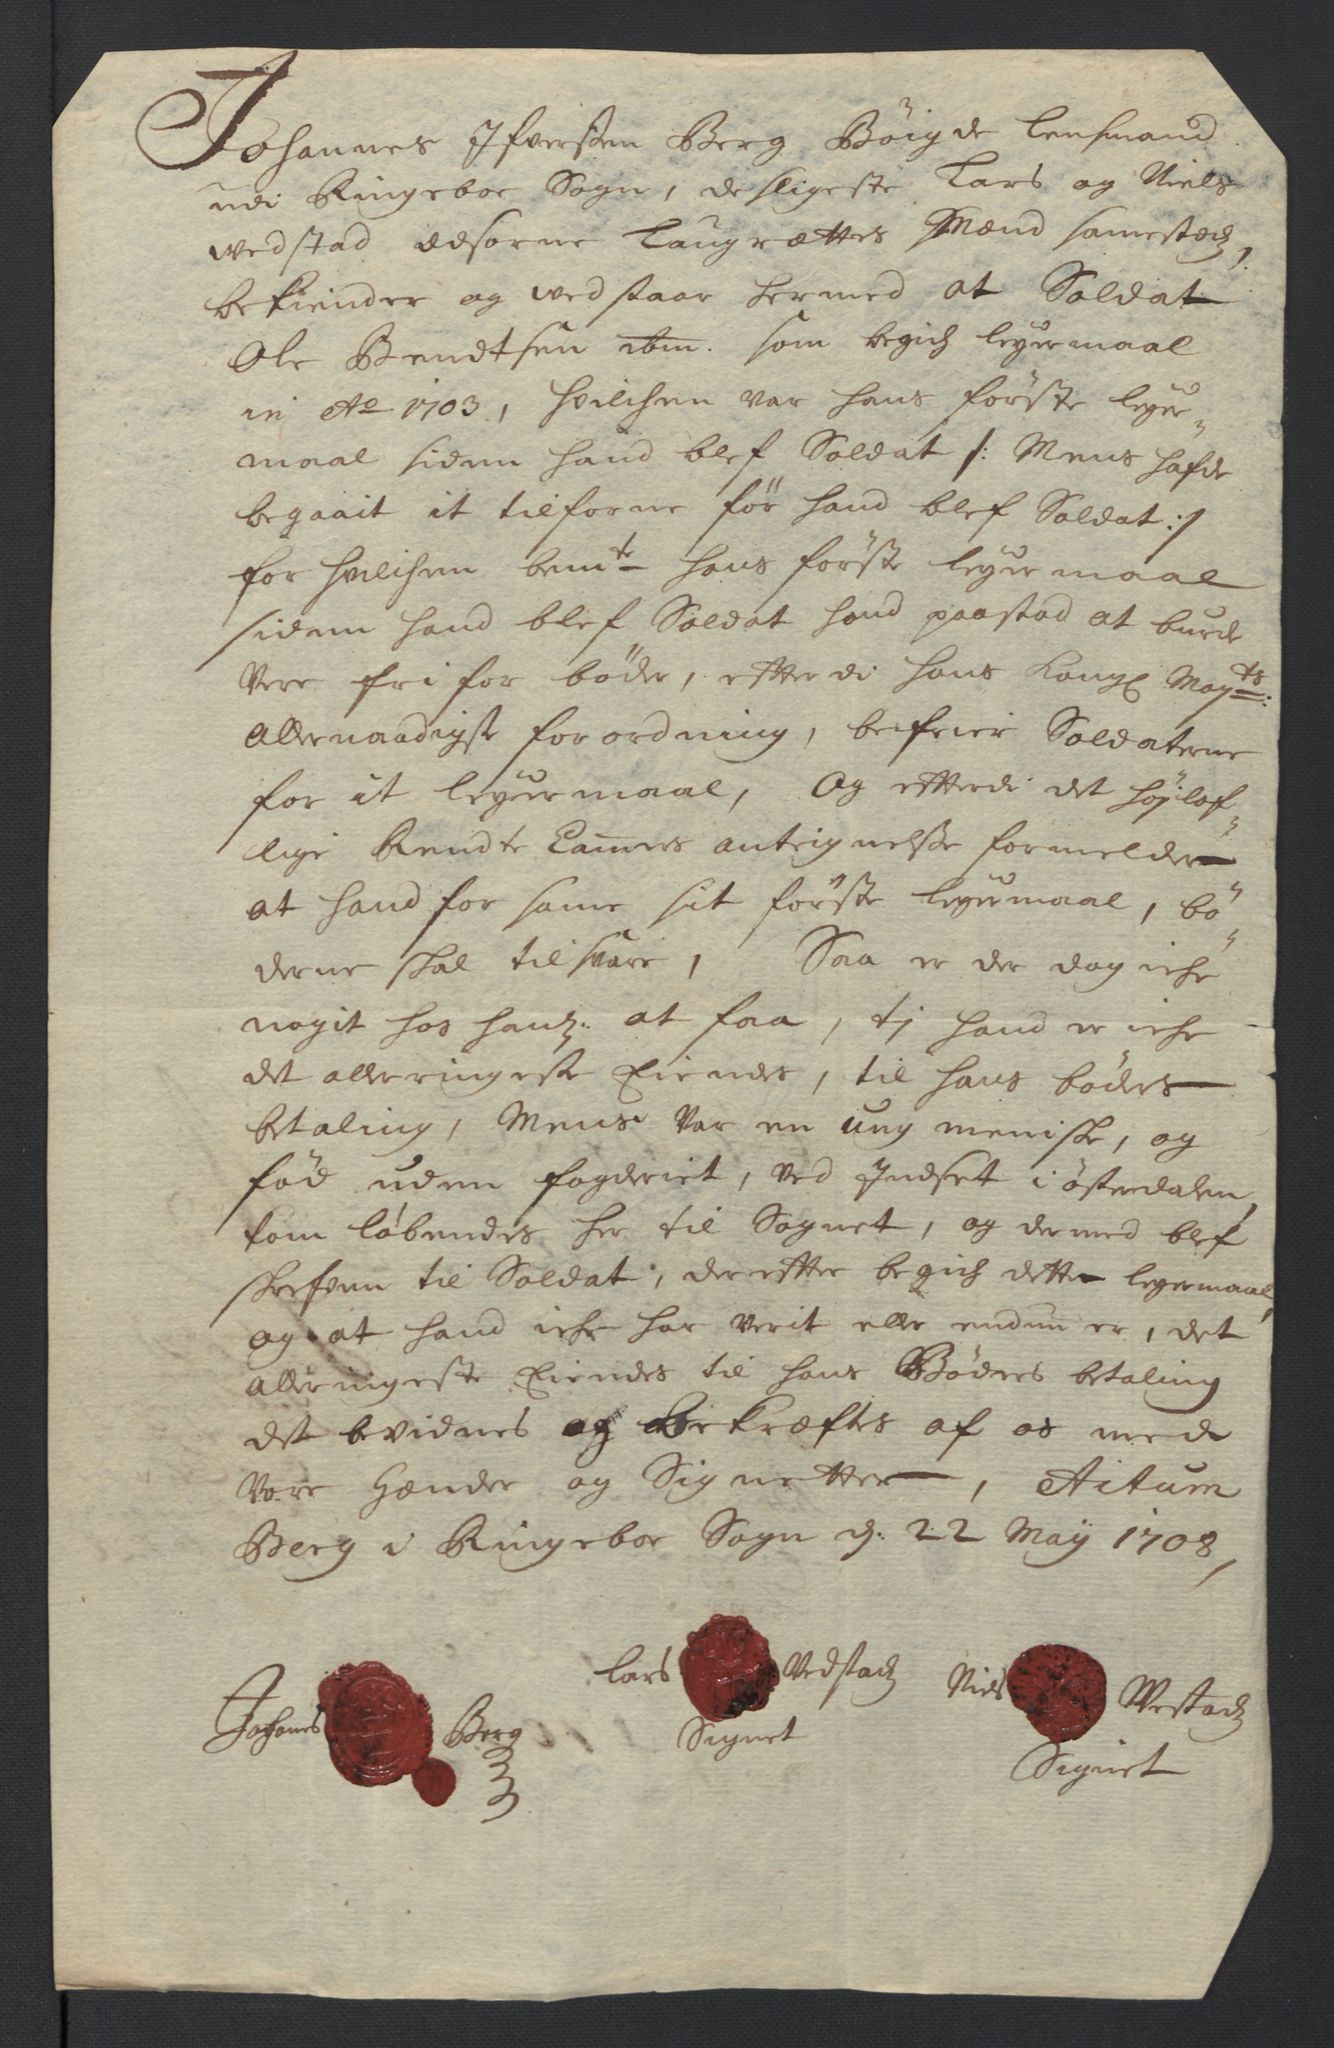 Johannes Ifversen Berg Bøigde lensmand
udi Ringeboe Sogn, desligeste Lars og Niels
wedstad Edsorne Laugrættes Mænd samestedz,
bekiender og wedstaar hermed at Soldat
Ole Bendtsen ibm. som begich leyermaal
in Ao 1703, hvilchen var hans første leyer-
maal siden hand blef Soldat /: Mens hafde
begaait it tilforne før hand blef Soldat :/
for hvilchen bemte hans første leyermaal
siden hand blef Soldat hand paastod at burde
vere fri for bøder, efterdi hans Kongl Mayts:
Allernaadigste forordning, befrier Soldaterne
for it leyermaal, Og efterdi det højlof-
lige Rendte Camers antegnelse formelder
at hand for same sit første leyermaal, bø-
derne skal tilsvare, Saa er der dog iche
nogit hos hanz. at faa, tj hand er iche
det allerringeste Eiendes, til hans bøders
betaling, Mens var en ung meniske, og
fød uden fogderiet, ved Indset i østerdalen,
kom løbendes her til Sognet, og dermed blef
skrefven til Soldat, derefter begich dette leyermaal,
og at hand iche har verit eller endnu er, det
allerringeste Eiendes til hans Bøders betaling
det bevidnes og bekræftes af os med
vore Hænder og Signetter, Actum
Berg i Ringeboe Sogn d. 22 Maÿ 1708,
Johanes Berg
Lars Vedstad
Signet
Niels Westad
Signet